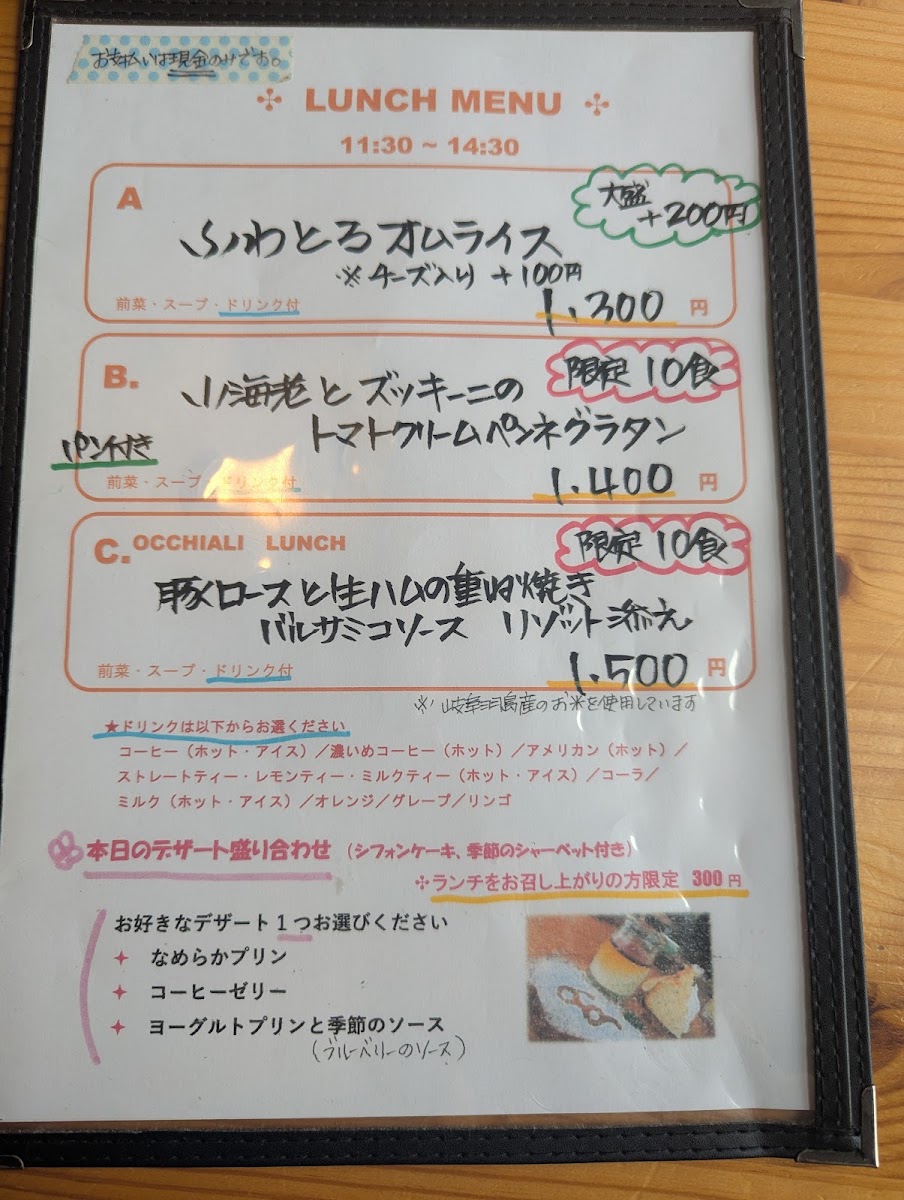 お支払いは現金のみです。
LUNCH MENU
11:30 ~ 14:30
A
大盛
+200円
ふわとろオムライス
※チーズ入り +100円
前菜・スープ・ドリンク付
1.300 円
B.
限定 10食
小海老とズッキーニの
トマトクリームペンネグラタン
パン付き
前菜・スープ・ドリンク付
1.400 円
C. OCCHIALI LUNCH
限定 10食
豚ロースと生ハムの重ね焼き
バルサミコソース リゾット添え
前菜・スープ・ドリンク付
1.500 円
※岐阜羽島産のお米を使用しています
★ドリンクは以下からお選ください
コーヒー(ホット・アイス)/濃いめコーヒー(ホット)/アメリカン(ホット)/
ストレートティー・レモンティー・ミルクティー(ホット・アイス)/コーラ/
ミルク(ホット・アイス)/オレンジ/グレープ/リンゴ
本日のデザート盛り合わせ (シフォンケーキ、季節のシャーベット付き)
✣ランチをお召し上がりの方限定 300円
お好きなデザート1つお選びください
✦ なめらかプリン
✦ コーヒーゼリー
✦ ヨーグルトプリンと季節のソース
(ブルーベリーのソース)